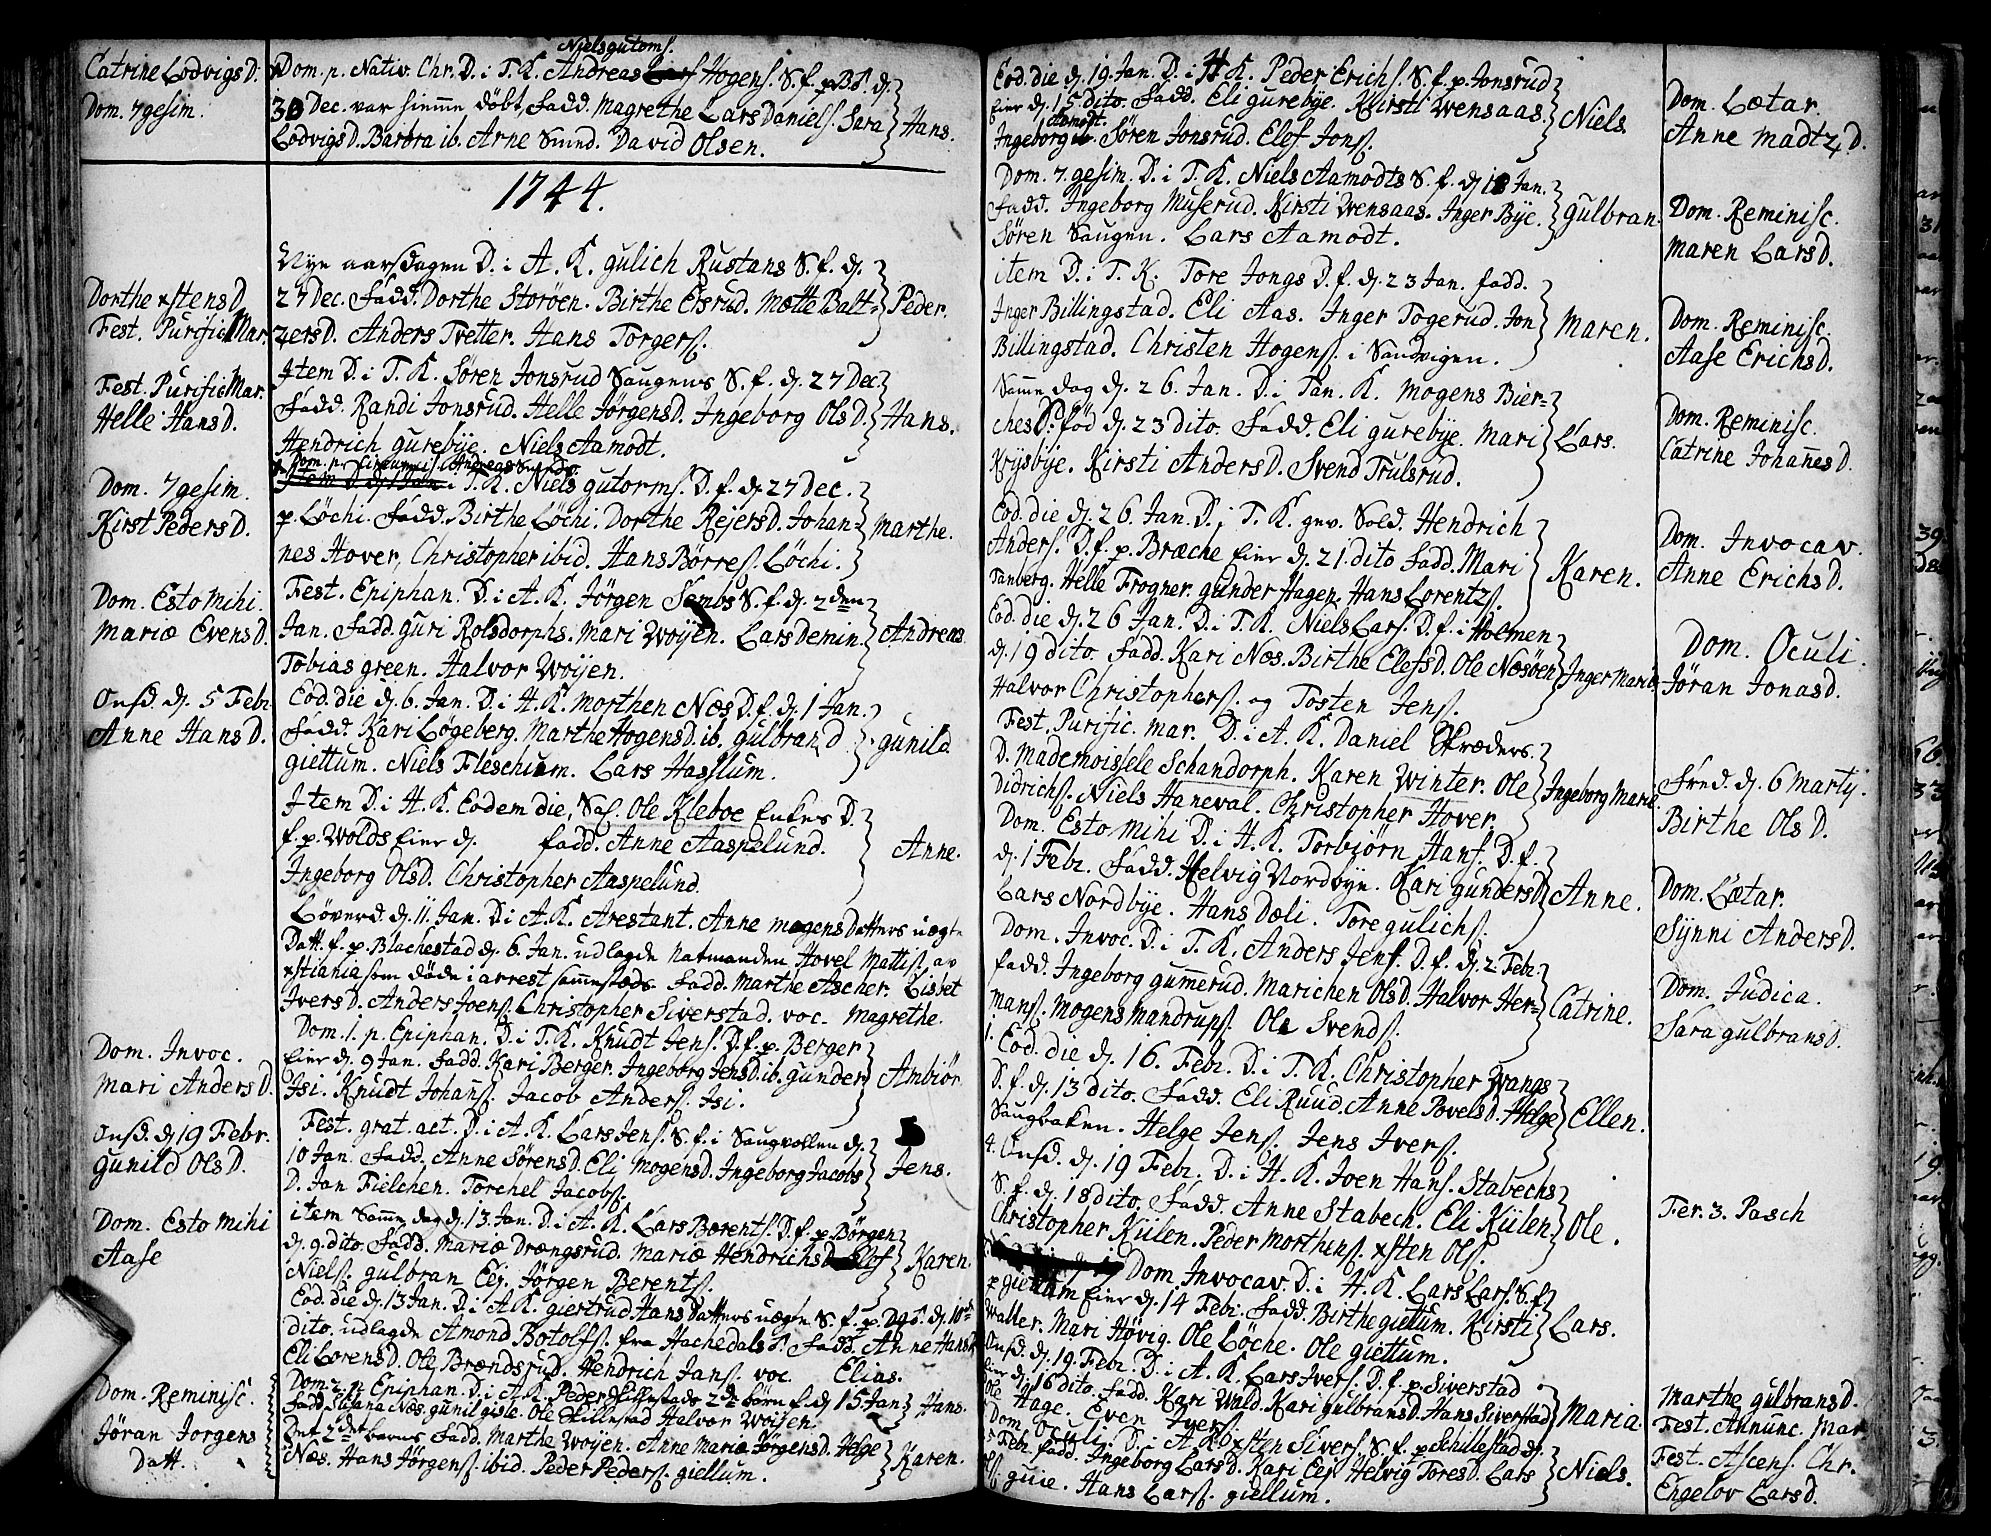 Catrine Lodvigs D.
Dom. 7gesim.
Nielsgutoms.
Dom. p. Nativ. Chr. D. i T. K. Andreas Hogens. S. f. p. B. d.
30 Dec. var hiemme döbt, Fadd. Magrethe Lars Daniels. Sara
Lodvigs D. Barbra ib. Arne Smed. David Olsen.
Hans.
1744.
Dorthe xstens D.
Fest. Purific. Mar.
Nye aarsdagen D. i A. K. gulich Rustans S. f. d.
27 Dec. Fadd. Dorthe Storöen. Birthe Eisrud. Mette Balt-
zers D. Anders Tvetter. Hans Torgers.
Peder.
Fest. Purific Mar.
Helle Hans D.
Item D. i T. K. Sören Jonsrud Saugens S. f. d. 27 Dec
Fadd. Randi Jonsrud. Helle Jörgens D. Ingeborg Ols D.
Hendrich gurebye. Niels Aamodt.
Hans.
Dom. 7gesim.
Kirst Peders D.
Dom. p. Circumcis.
i T. K. Niels gutorms. D. f. d. 27 Dec.
p. Löchi. Fadd. Birthe Löchi. Dorthe Rejers D. Johan-
nes Hover, Christopher ibid. Hans Börres. Löchi.
Marthe.
Dom. Esto Mihi.
Mariæ Evens D.
Fest. Epiphan. D. i A. K. Jörgen Sembs S. f. d. 2den
Jan. Fadd. guri Rolsdorphs. Mari Woyen. Lars Demin.
Tobias green. Halvor Woyen.
Andreas
Onsd. d. 5 Febr.
Anne Hans D.
Eod. die d. 6. Jan. D. i H. K. Morthen Næs D. f. d. 1 Jan.
Fadd. Kari Løgeberg. Marthe Hogens D. ib. gulbrand
giettum. Niels Fleschum. Lars Haslum.
gunild
Item D. i H. K. Eodem die, Sal. Ole Kleboe Enkes D.
f. p. Wolds Eier d. Fadd. Anne Aaspelund.
Ingeborg Ols D. Christopher Aaspelund.
Anne.
Löverd. d. 11. Jan. D. i A. K. Arestant. Anne Mogens Datters uægte
Datt. f. p. Blachestad d. 6 Jan. udlagde Natmanden Hovel Mattis. av
xstiania som döde i arrest sammesteds Fadd. Marthe Ascher. Lisbet
Ivers D. Anders Joens. Christopher Siverstad. voc. Magrethe.
Dom. Invoc.
Mari Anders D.
Dom. 1. p. Epiphan. D. i T. K. Knudt Jens. D. f. p. Berger
Eier d. 9 Jan. Fadd. Kari Berger. Ingeborg Jens D. ib. gunder
Isi. Knudt Johans. Jacob Anders. Isi.
Ambiör
Onsd. d. 19 Febr.
gunild Ols D.
Fest. grat. act. D. i A. K. Lars Jens. S. f. i Saugvollen d.
10 Jan. Fadd. Anne Sörens D. Eli Mogens D. Ingeborg Jacobs
D. Jan Fielchen. Torchel Jacobs.
Jens.
Dom. Esto Mihi
Aase
item Samme dag d. 13. Jan. D. i A. K. Lars Berents. D. f. p. Börgen
d. 9. dito. Fadd. Mariæ Drængsrud. Mariæ Hendrichs D.
Niels. gulbran Eej. Jörgen Berents.
Karen.
Eod. die d. 13 Jan. D. i A. K. giertrud Hans Datters uægte S. f. p. d. 10
dito. udlagde Amond Botolfs. fra Hachedals P. Fadd. Anne Hans D.
Eli Lorens D. Ole Brændsrud. Hendrich Jans. voc. Elias.
Dom. Reminisc.
Jöran Jorgens
Datt.
Dom. 2. p. Epiphan. D. i A. K. Peder Hillestads 2de börn f. d. 15 Jan
Fadd. Næs. gunil gisle. Ole Hillestad Halvor Woyen.
Hans.
Det 2det barns Fadd. Marthe Woyen. Anne Mariæ Jörgens D. Helge
Næs. Hans Jörgens. ibid. Peder Peders. giellum.
Karen.
Eod. die d. 19. Jan. D. i H. K. Peder Erichs. S. f. p. Jonsrud
Eier d. 15 dito. Fadd. Eli gurebye. Kirsti Wensaas.
Aamodt.
Ingeborg Sören Jonsrud. Elef Jons.
Niels
Dom. Lætar.
Anne Madtz D.
Dom. 7.gesim. D. i T. K. Niels Aamodts S. f. d. 18 Jan.
Fadd. Ingeborg Muserud. Kirsti Wensaas. Inger Bye.
Sören Saugen. Lars Aamodt.
gulbran.
Dom. Reminisc.
Maren Lars D.
item D. i T. K. Tore Jongs D. f. d. 23 Jan. fadd.
Inger Billingstad. Eli Aas. Inger Togerud. Jon
Billingstad. Christen Hogens. i Sandvigen.
Maren.
Dom. Reminisc.
Aase Erichs D.
Samme dag d. 26. Jan. D. i Tan. K. Mogens Bier-
ches D. föd d. 23 dito. Fadd. Eli gurebye. Mari
Krysbye. Kirsti Anders D. Svend Trulsrud.
Lars.
Dom. Reminisc.
Catrine Johannes D.
Eod. die d. 26. Jan. D. i T. K. gev. Sold. Hendrich
Anders. D. f. p. Bræche Eier d. 21. dito Fadd. Mari
Tanberg. Helle Frogner. gunder Hagen. Hans Lorentz.
Karen.
Dom. Invocav.
Anne Erichs D.
Eod. die d. 26 Jan. D. i T. K. Niels Lars. D. f. i Holmen
d. 19 dito. Fadd. Kari Næs. Birthe Elefs D. Ole Næsöen
Halvor Christophers. og Tosten Jens.
Inger Marie
Dom. Oculi.
Jöran Jonas D.
Fest. Purific. Mar. D. i A. K. Daniel Skræders.
D. Mademoissele Schandorph. Karen Winter. Ole
Didrichs. Niels Haneval. Christopher Hover
Ingeborg Marie
Fred. d. 6 Marty.
Birthe Ols D.
Dom. Esto Mihi D. i H. K. Torbiörn Hans. D. f.
d. 1 Febr. Fadd. Helvig Nordbye. Kari gunders D.
Lars Nordbye. Hans Dæli. Tore gulichs.
Anne.
Dom. Lætar.
Synni Anders D.
Dom. Invoc. D. i T. K. Anders Jens. D. f. d. 2 Febr.
Fadd. Ingeborg gummerud. Marichen Ols D. Halvor Her-
mans. Mogens Mandrups. Ole Svends.
Catrine.
Dom. Judica.
Sara gulbrans D.
1. Eod. die d. 16 Febr. D. i T. K. Christopher Wangs
S. f. d. 13 dito. Fadd. Eli Ruud. Anne Povels D. Helge
Saugbaken. Helge Jens. Jens Ivers.
Ellen.
4. Onsd. d. 19 Febr. D. i H. K. Joen Hans. Stabechs
S. f. d. 18 dito. Fadd. Anne Stabech. Eli Kiilen.
Christopher Kiilen. Peder Morthens. xsten Ols.
Ole.
Fer. 3. Pasch
Dom Invocav. D. i H. K. Lars Lars. S. f
p. gietum Eier d. 14 Febr. Fadd. Birthe giettum. Kirsti
Waller. Mari Hövig. Ole Löche. Ole giettum.
Lars.
Onsd. d. 19. Febr. D. i A. K. Lars Ivers. D. f. p. Siverstad
Eier d. 16 dito. Fadd. Kari Wald. Kari gulbrans D. Hans Siverstad
Ole Hage. Even Ivers.
Maria.
Marthe gulbrans D.
Fest. Annunc. Mar.
Dom. Oculi. D. i A. K. xsten Sivers. S. f. p. Schillestad d.
5 Febr. fadd. Ingeborg Lars D. Kari Eej Helvig Tores D. Lars
guie. Hans Lars. giellum.
Niels.
Fest. Ascens. Chr.
Engelov Lars D.